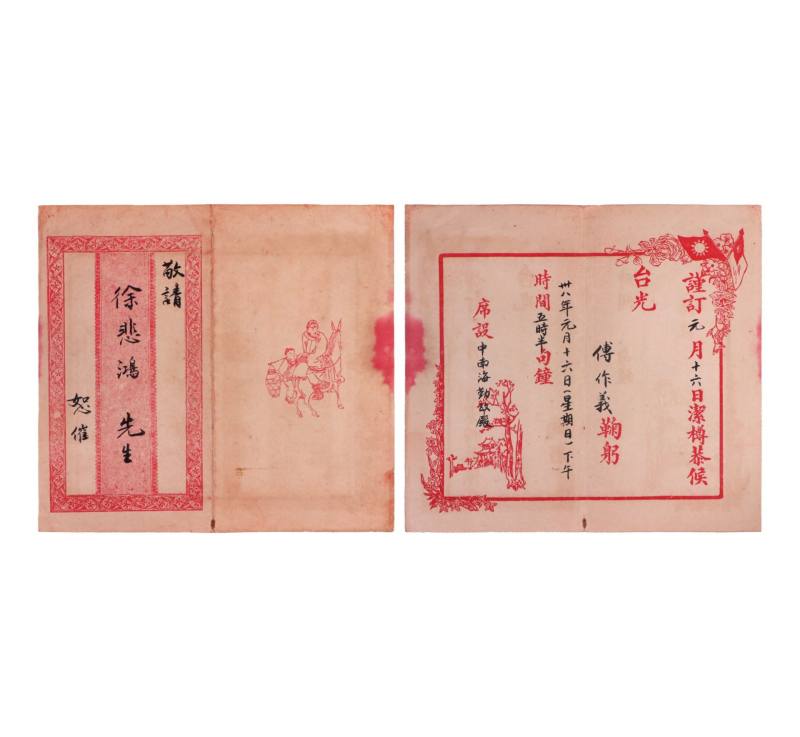 敬請
徐悲鴻 先生
恕催
謹訂元月十六日潔樽恭候
台光
傅作義鞠躬
卅八年元月十六日(星期日)下午
時間五時半旬鐘
席設中南海勤政殿